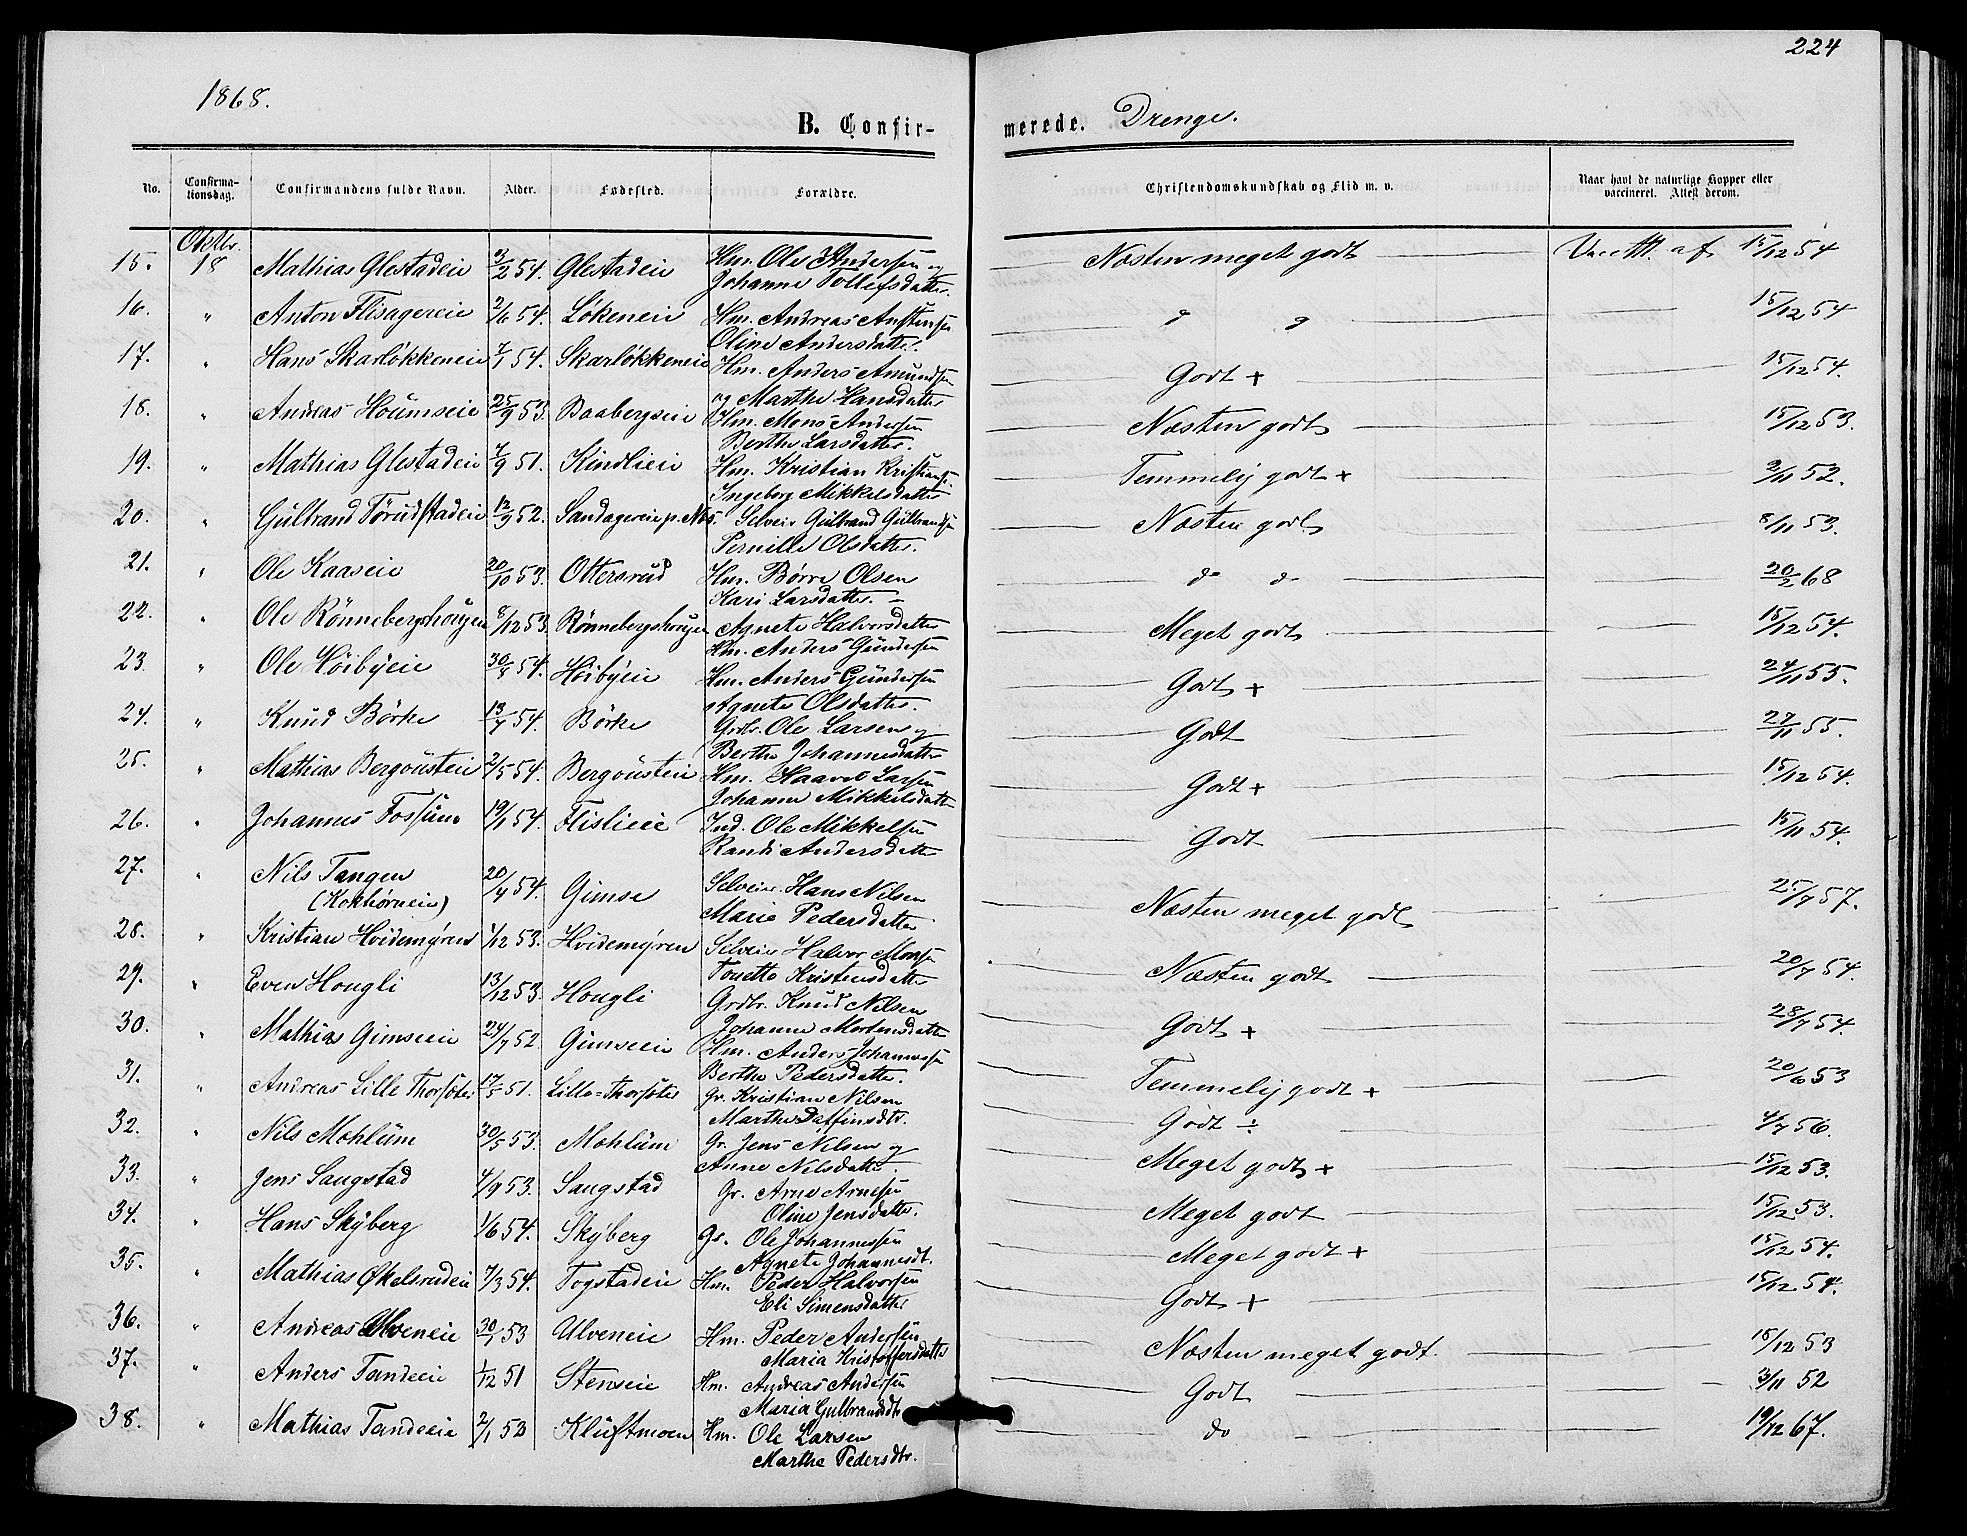 224
1868.
B. Confir-
merede. Drenge.
No. Confirma-tionsdag. Confirmandens fulde Navn. Alder. Fødested. Forældre. Christendomskundskab og Flid m. v. Naar havt de naturlige Kopper eller vaccineret. Attest derom.
Oktbr.
15. 18 Mathias Glestadeie 3/2 54. Glestadeie Hm. Ole Andersen og Næsten meget godt Vacc. Att. af 15/12 54
Johanne Tollefsdatter.
16. " Anton Flisagereie 2/6 54. Løkeneie Hm. Andreas Anstensen d d 15/12 54
Oline Andersdatter.
17. " Hans Skarløkkeneie 7/1 54. Skarløkkeneie Hm. Anders Amundsen Godt + 15/12 54.
og Marthe Hansdatter
18. " Andreas Houmseie 25/9 53. Baabergseie Hm. Mons Andersen Næsten godt 15/12 53.
Berthe Larsdatter.
19. " Mathias Glestadeie 7/9 51. Kindlieie Hm. Kristian Kristians. Temmelig godt + 2/11 52.
Ingeborg Mikkelsdatter
20. " Gulbrand Torudstadeie 12/9 52. Sandagereie p. Næs. Selveier Gulbrand Gulbrandsen Næsten godt 8/11 53.
Pernille Olsdatter.
21. " Ole Kaaseie 20/10 53. Ottersrud Hm. Børre Olsen do do 20/2 68
Kari Larsdatter.
22. " Ole Rønnebergshougen 8/12 53. Rønnebergshougen Agnete Halvorsdatter Meget godt 15/12 54.
Hm. Anders Gundersen
23. " Ole Høibyeie 30/8 54. Høibyeie Hm. Anders Gundersen Godt + 24/11 55.
Agnete Olsdatter.
24. " Knud Børke 13/4 54. Børke Grdbr. Ole Larsen og Godt 27/11 55.
Berthe Johannesdatter
25. " Mathias Bergousteie 2/5 54. Bergousteie Hm. Haavel Larsen Godt + 15/12 54.
Johanne Mikkelsdatter
26. " Johannes Fossum 19/1 54. Flislieie Ind. Ole Mikkelsen Godt 15/11 54.
Randi Andersdatter
27. " Nils Tangen 20/4 54. Gimse Selveier Hans Nilsen Næsten meget godt 25/7 57.
(Kokhørneie) Marie Pedersdatter
28. " Kristian Hvidemyren 1/12 53. Hvidemyren Selveier Halvor Monsen Næsten godt 20/7 54.
Tonette Kristensdatter
29. " Even Hougli 13/12 53. Hougli Grdbr. Knud Nilsen Godt + 28/7 54.
Johanne Mortensdatter
30. " Mathias Gimseeie 24/7 52 Gimseeie Hm. Anders Johannesen Temmelig godt + 20/6 53
Berthe Pedersdatter.
31. " Andreas Lille Thorsøter 17/5 51. Lille=Thorsøter Gr. Kristian Nilsen Godt ÷ 4/7 56.
Marthe Daffinsdtr.
32. " Nils Mohlum 30/5 53. Mohlum Gr. Jens Nilsen og Meget godt + 15/12 53.
Anne Nilsdatter.
33. " Jens Saugstad 4/9 53. Saugstad Gr. Arne Arnesen Meget godt 15/12 53.
Oline Jensdatter.
34. " Hans Skyberg 1/6 54. Skyberg Gr. Ole Johannessen Meget godt + 15/12 54.
Agnete Johannesdt.
35. " Mathias Økelsrudeie 7/3 54. Togstadeie Hm. Peder Halvorsen Godt + 15/12 54.
Eli Simensdatter
36. " Andreas Ulveneie 30/1 53 Ulveneie Hm. Peder Andersen Næsten meget godt. 15/12 53
Maria Kristoffersdatter
37. " Anders Tandeeie 1/12 51 Stenseie Hm. Andreas Andersen Godt 3/11 52
Maria Gulbrandsdtr
38. " Mathias Tandeeie 2/1 53 Kluftmoen Hm. Ole Larsen do 19/12 67.
Marthe Pedersdtr.